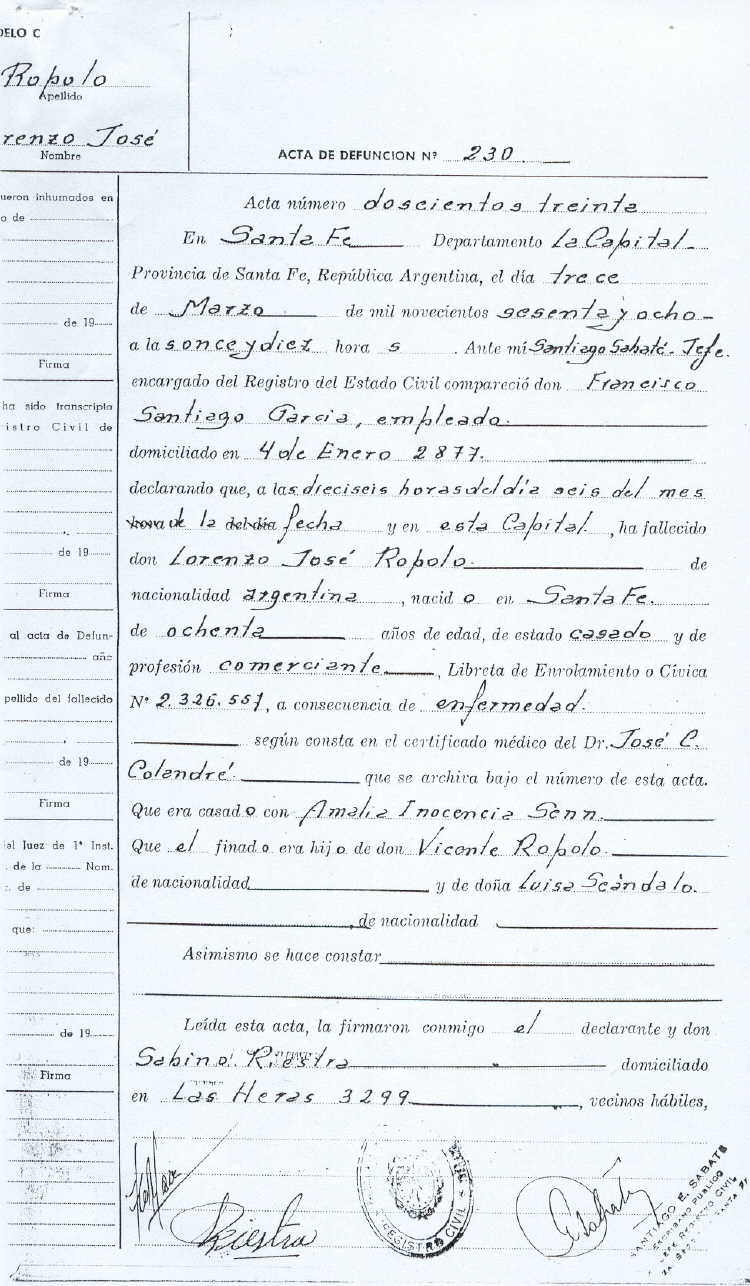 DELO C
Ropolo
Apellido
renzo José
Nombre
ACTA DE DEFUNCION Nº 230
ueron inhumados en
o de
de 19
Firma
ha sido transcripta
istro Civil de
de 19
Firma
al acta de Defun-
año
pellido del fallecido
de 19
Firma
el Juez de 1ª Inst.
de la Nom.
de
que:
de 19
Firma
Acta número doscientos treinta
En Santa Fe Departamento La Capital
Provincia de Santa Fe, República Argentina, el día trece
de Marzo de mil novecientos sesenta y ocho
a las once y diez hora s . Ante mí Santiago Sabaté. Jefe.
encargado del Registro del Estado Civil compareció don Francisco
Santiago Garcia, empleado.
domiciliado en 4 de Enero 2877.
declarando que, a las dieciseis horas del día seis del mes
de la fecha y en esta Capital, ha fallecido
don Lorenzo José Ropolo. de
nacionalidad argentina, nacido en Santa Fe.
de ochenta años de edad, de estado casado y de
profesión comerciante, Libreta de Enrolamiento o Cívica
Nº 2.326.551, a consecuencia de enfermedad.
según consta en el certificado médico del Dr. José C.
Colandré. que se archiva bajo el número de esta acta.
Que era casado con Amalia Inocencia Senn.
Que el finado era hijo de don Vicente Ropolo.
de nacionalidad y de doña Luisa Scándalo.
, de nacionalidad
Asimismo se hace constar
Leída esta acta, la firmaron conmigo el declarante y don
Sabino Riestra domiciliado
en Las Heras 3299, vecinos hábiles,
Riestra
REGISTRO CIVIL
SANTIAGO E. SABATE
ESCRIBANO PUBLICO
JEFE REGISTRO CIVIL